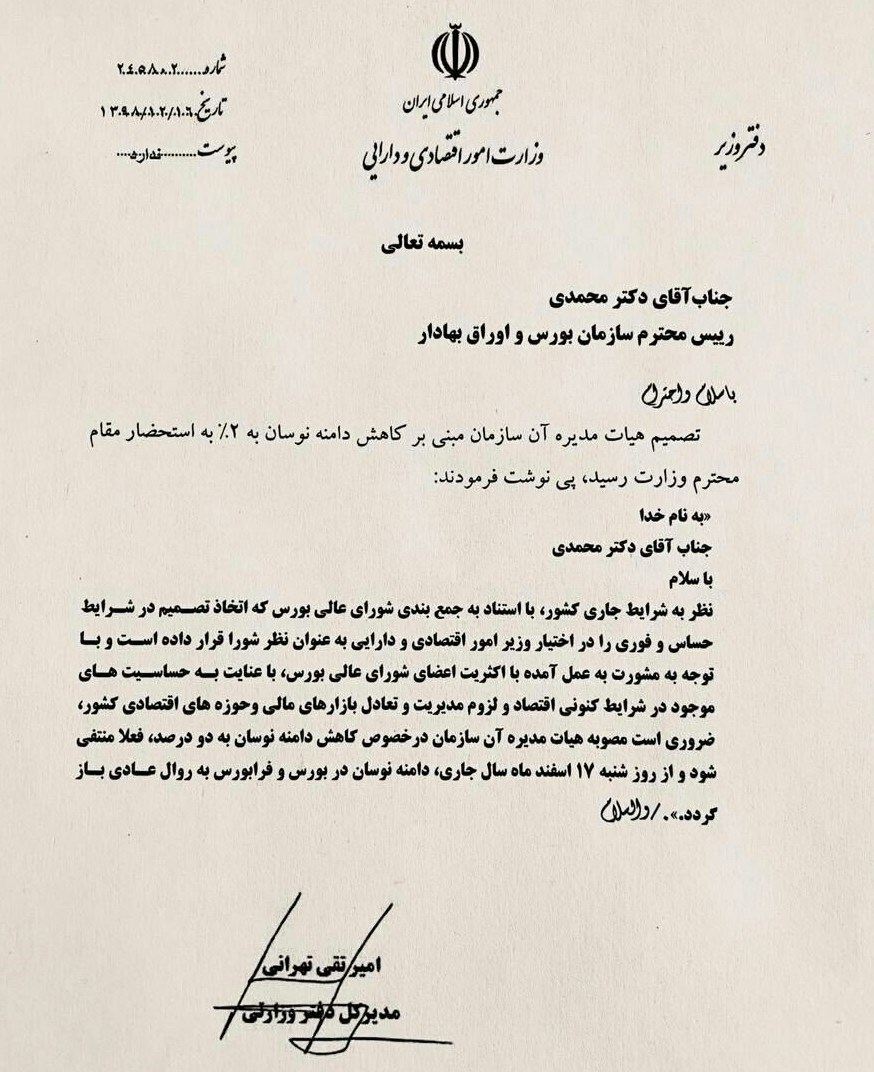 جمهوری اسلامی ایران
وزارت امور اقتصادی و دارایی
دفتر وزیر
شماره......۲۴۵۸۸۰۲
تاریخ ۱۳۹۸/۱۲/۱۶
پیوست..........ندارد....
بسمه تعالی
جناب‌آقای دکتر محمدی
رییس محترم سازمان بورس و اوراق بهادار
باسلام واحترام
تصمیم هیات مدیره آن سازمان مبنی بر کاهش دامنه نوسان به ۲٪ به استحضار مقام
محترم وزارت رسید، پی نوشت فرمودند:
«به نام خدا
جناب آقای دکتر محمدی
با سلام
نظر به شرایط جاری کشور، با استناد به جمع بندی شورای عالی بورس که اتخاذ تصمیم در شرایط
حساس و فوری را در اختیار وزیر امور اقتصادی و دارایی به عنوان نظر شورا قرار داده است و با
توجه به مشورت به عمل آمده با اکثریت اعضای شورای عالی بورس، با عنایت به حساسیت های
موجود در شرایط کنونی اقتصاد و لزوم مدیریت و تعادل بازارهای مالی وحوزه های اقتصادی کشور،
ضروری است مصوبه هیات مدیره آن سازمان درخصوص کاهش دامنه نوسان به دو درصد، فعلا منتفی
شود و از روز شنبه ۱۷ اسفند ماه سال جاری، دامنه نوسان در بورس و فرابورس به روال عادی باز
گردد.». /والسلام
امیر تقی تهرانی
مدیرکل دفتر وزارتی